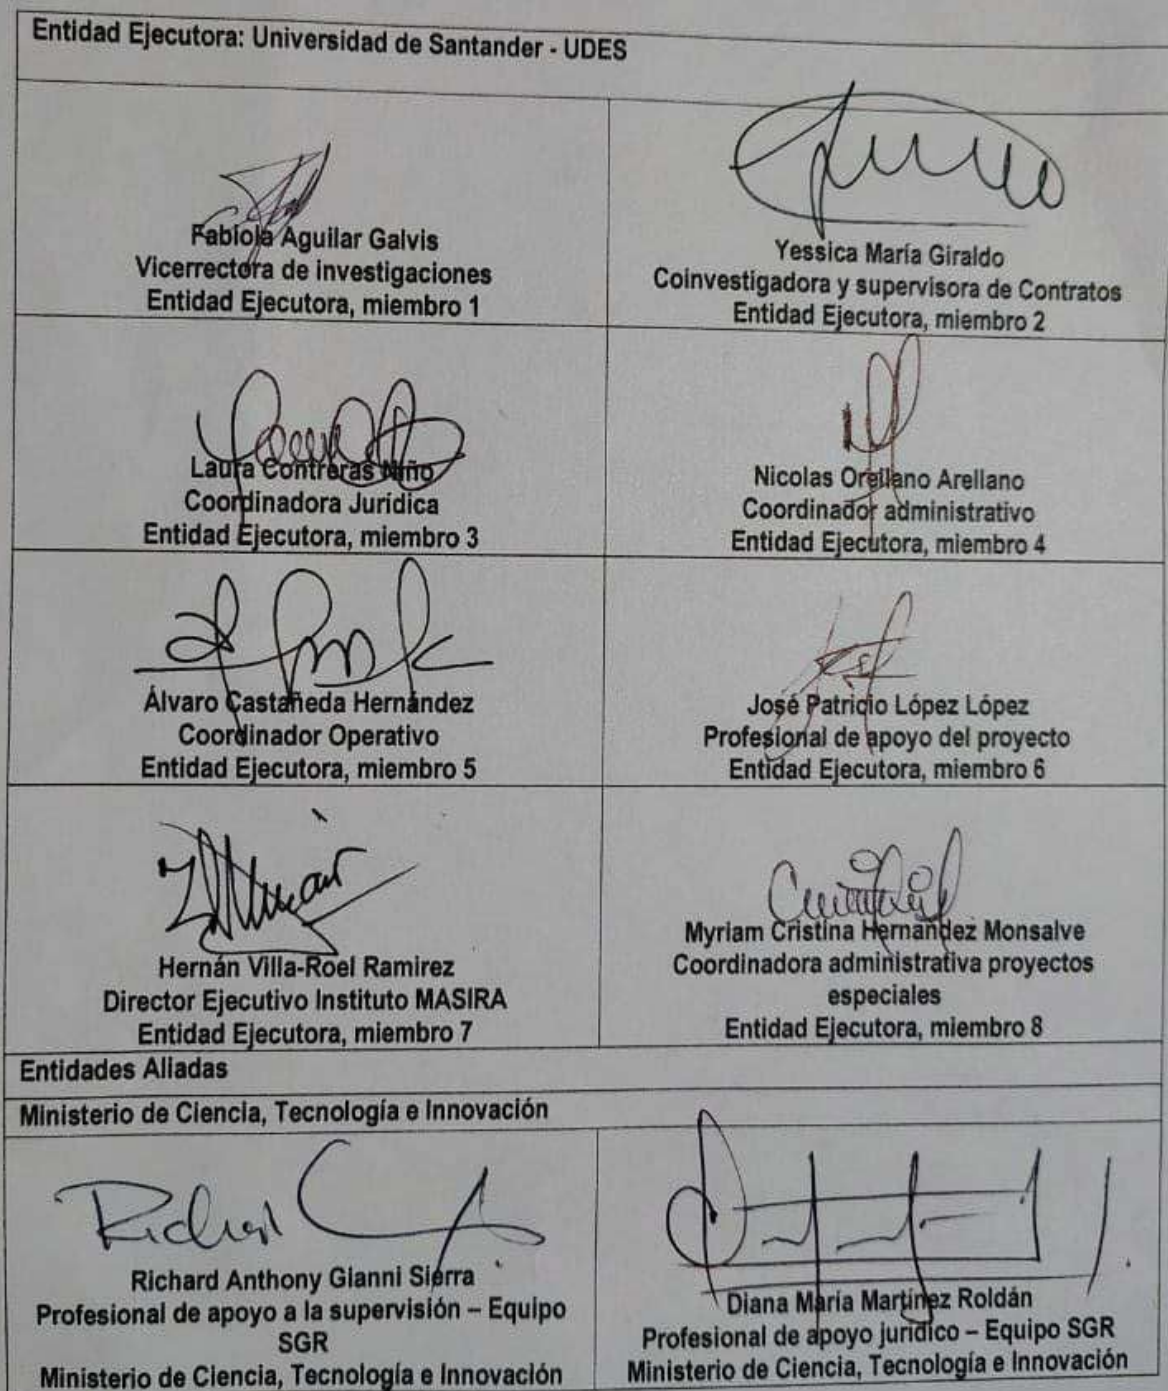 Entidad Ejecutora: Universidad de Santander - UDES
Fabiola Aguilar Galvis
Vicerrectora de investigaciones
Entidad Ejecutora, miembro 1
Yessica María Giraldo
Coinvestigadora y supervisora de Contratos
Entidad Ejecutora, miembro 2
Laura Contreras Niño
Coordinadora Jurídica
Entidad Ejecutora, miembro 3
Nicolas Orellano Arellano
Coordinador administrativo
Entidad Ejecutora, miembro 4
Álvaro Castañeda Hernández
Coordinador Operativo
Entidad Ejecutora, miembro 5
José Patricio López López
Profesional de apoyo del proyecto
Entidad Ejecutora, miembro 6
Hernán Villa-Roel Ramirez
Director Ejecutivo Instituto MASIRA
Entidad Ejecutora, miembro 7
Myriam Cristina Hernandez Monsalve
Coordinadora administrativa proyectos
especiales
Entidad Ejecutora, miembro 8
Entidades Aliadas
Ministerio de Ciencia, Tecnología e Innovación
Richard
Richard Anthony Gianni Sierra
Profesional de apoyo a la supervisión – Equipo
SGR
Ministerio de Ciencia, Tecnología e Innovación
Diana María Martínez Roldán
Profesional de apoyo jurídico – Equipo SGR
Ministerio de Ciencia, Tecnología e Innovación